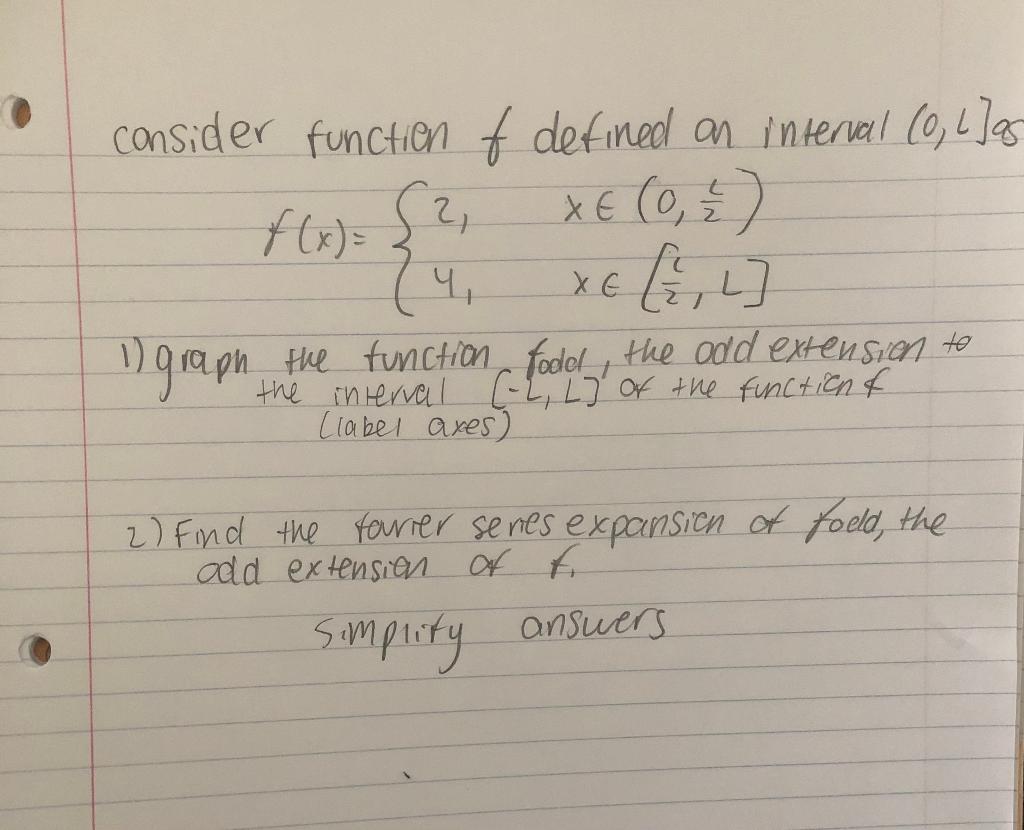 consider function f defined on interval (0, L] as
f(x) = { 2, x ∈ (0, L/2)
4, x ∈ [L/2, L]
1) graph the function fodd, the odd extension to
the interval [-L, L] of the function f
(label axes)
2) Find the fourier series expansion of fodd, the
odd extension of f.
simplify answers